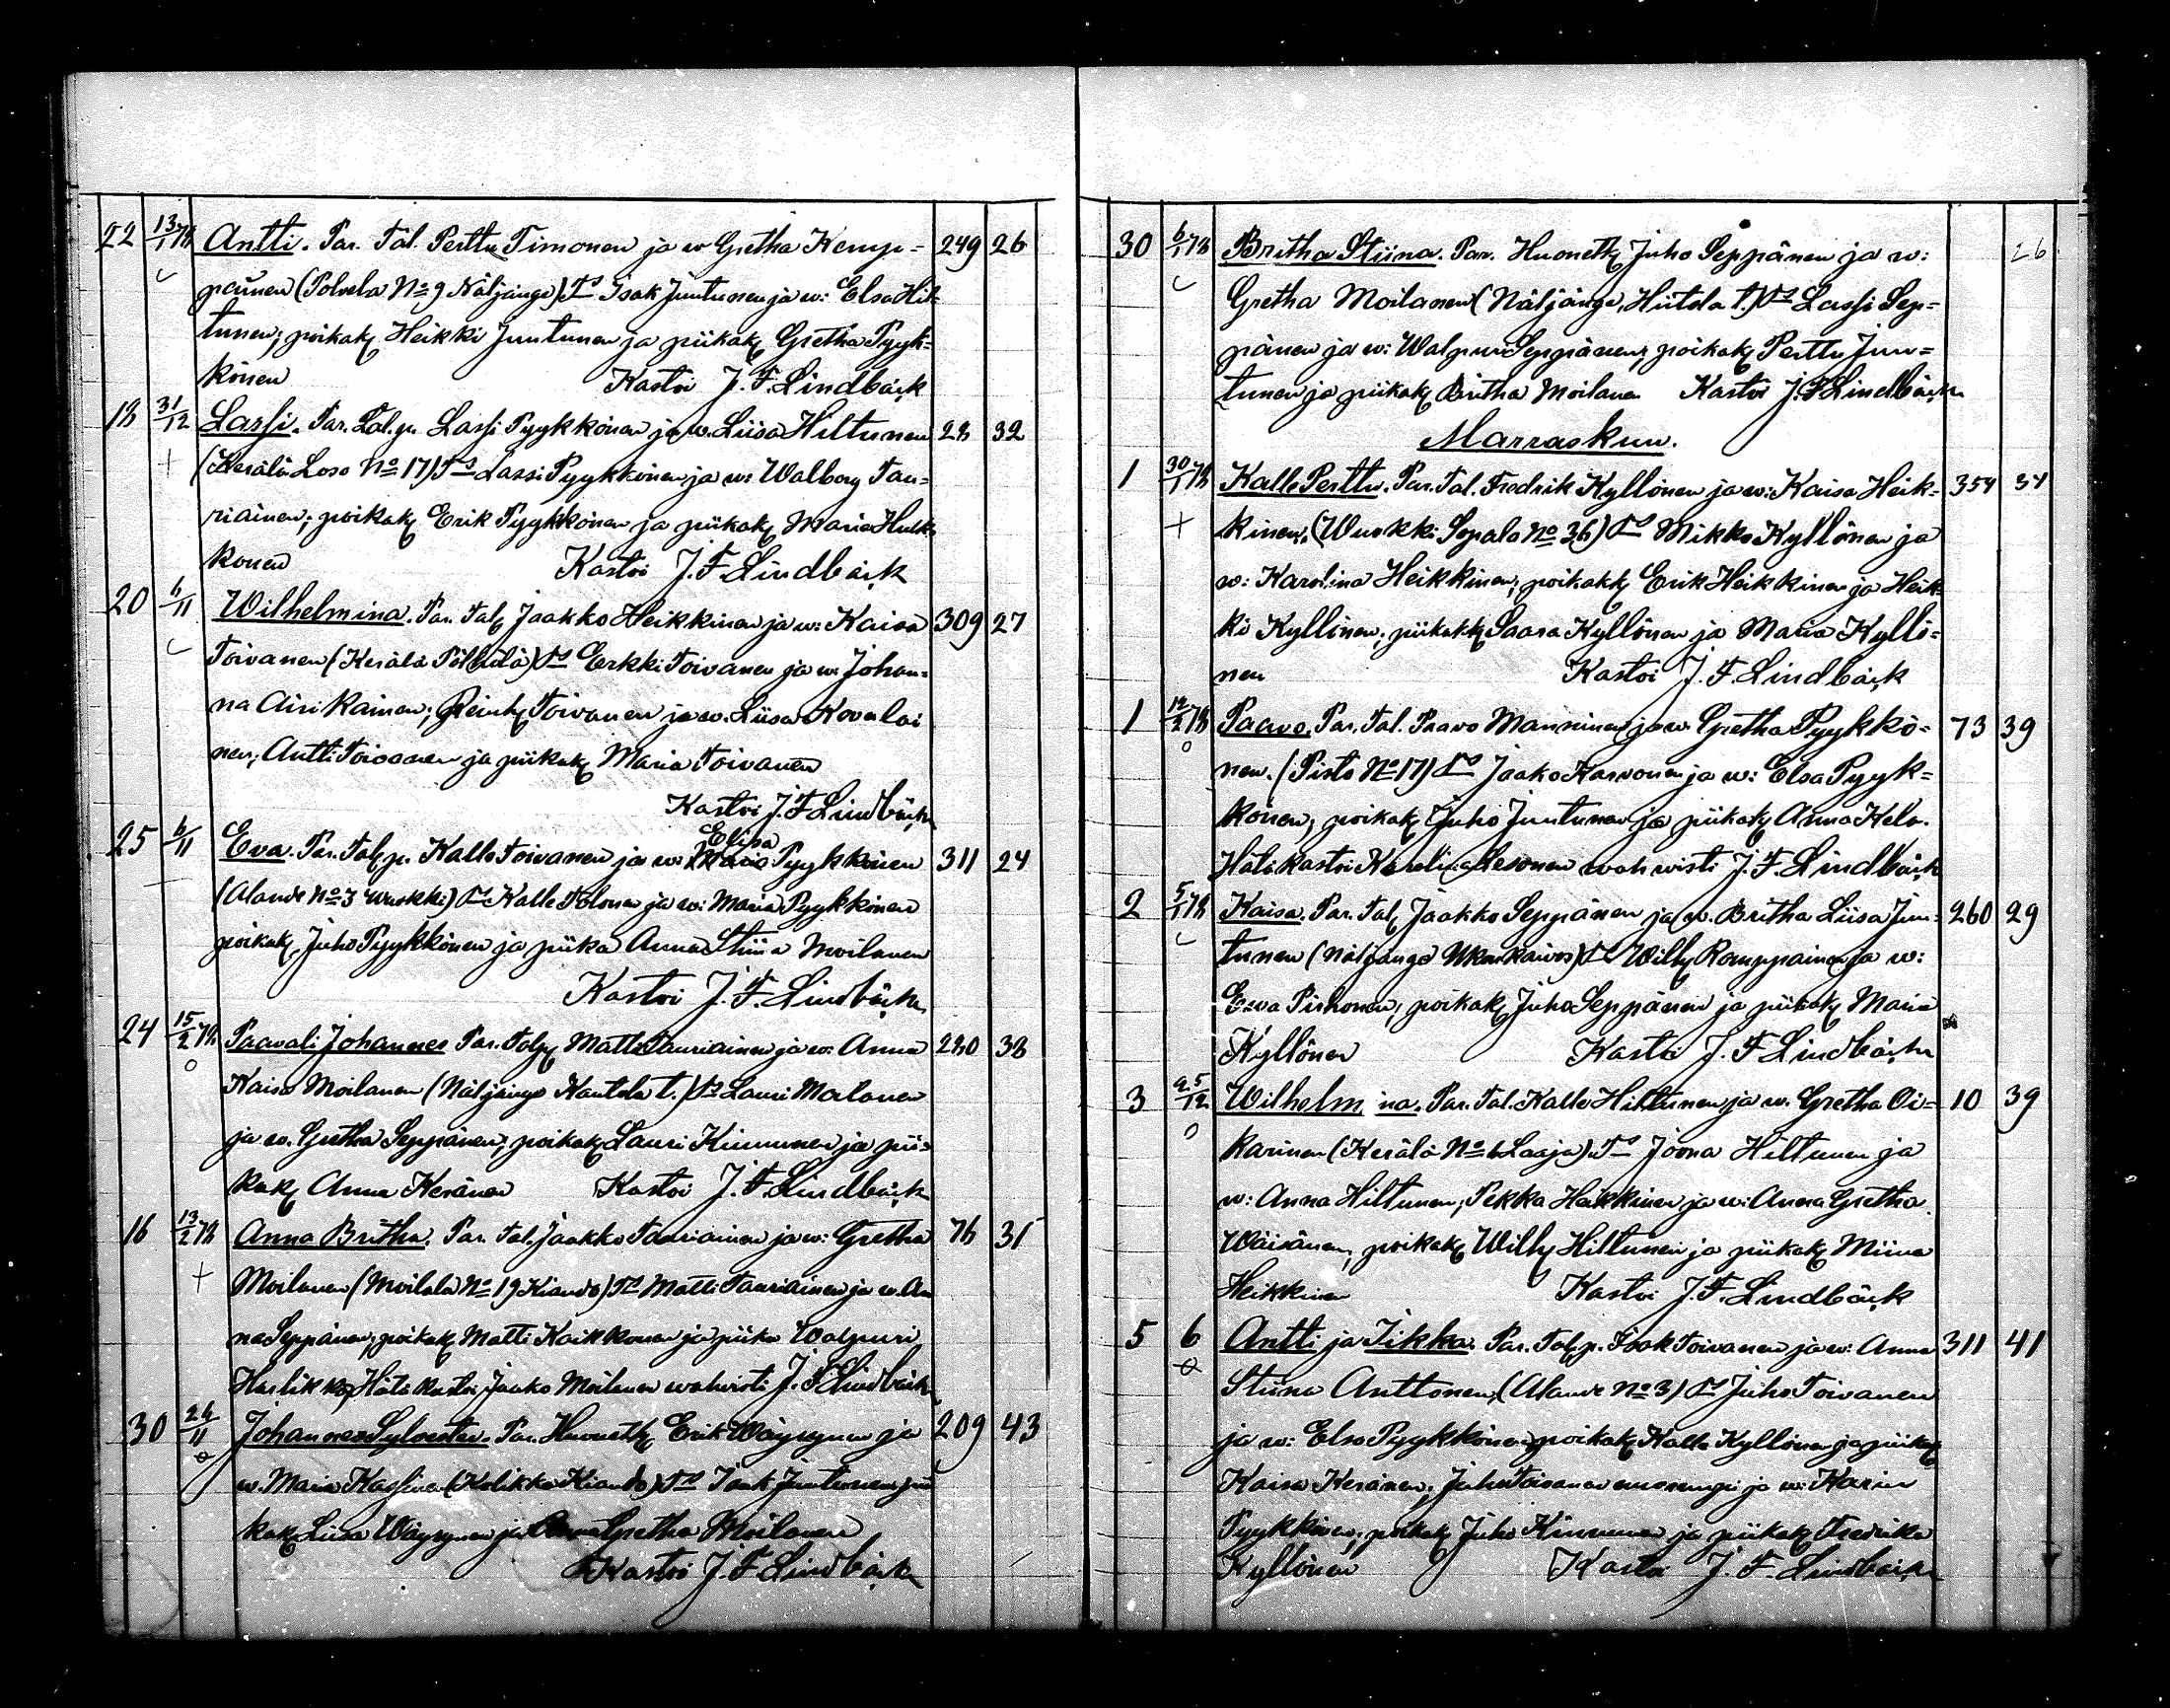 22 13/1 78 Antti. Par. Tal. Perttu Timonen ja w Gretha Kemp- 249 26
painen (Polvela No 9 Näljänge) Ts Isak Juntunen ja w: Elsa Hil-
tunen; poikak Heikki Juntunen ja piikak Gretha Pyyk-
könen Kastoi J. F. Lindbäck
18 31/12 Lassi. Par. Tal.p. Lassi Pyykkönen ja w. Liisa Hiltunen 28 32
(Kerälä Loso No 17) Ts Lassi Pyykkönen ja w: Walborg Tau-
riainen; poikak Erik Pyykkönen ja piikak Maria Hulk-
konen Kastoi J. F. Lindbäck
20 6/11 Wilhelmina. Par. Tal Jaakko Heikkinen ja w: Kaisa 309 27
Toivanen (Kerälä Pölhölä) Ts Erkki Toivanen ja w: Johan-
na Airikainen; Toivanen ja w. Liisa Kovalai
nen; Antti Toivanen ja piikak Maria Toivanen
Kastoi J. F. Lindbäck
Elisa
25 6/11 Eva. Par. Tal.p. Kalle Toivanen ja w: Maria Pyykkönen 311 24
(Alande No 3 Wuokki) Ts Kalle Tolonen ja w: Maria Pyykkönen
poikak Juho Pyykkönen ja piika Anna Stiina Moilanen
Kastoi J. F. Lindbäck
24 15/2 78 Paavali Johannes Par. Tal Matts Tauriainen ja w: Anna 280 38
Kaisa Moilanen (Näljänge Kautela t.) Ts Lauri Moilanen
ja w. Gretha Seppänen; poikak Lauri Kinnunen ja pii-
kak Anna Keränen Kastoi J. F. Lindbäck
16 13/2 78 Anna Britha. Par. Tal. Jaakko Tauriainen ja w: Gretha 76 31
Moilanen (Moilala No 19 Kiando) Ts Matti Tauriainen ja w. An
na Seppänen; poikak Matti Kaikkonen ja piika Walpuri
Hätä kastoi Jaako Moilanen wahwisti J. F. Lindbäck
30 26/11 Johannes Sylvester. Par. Huonetk Erik Wäyrynen ja 209 43
w. Maria (Kolikko Kiando) Ts Isak Juntunen pii
kak Liisa Wäyrynen ja Gretha Moilanen
Kastoi J. F. Lindbäck
26
30 6/1 78 Britha Stiina. Par. Huonetk Juho Seppänen ja w:
Gretha Moilanen (Näljänge, Hiitola t.) Ts Lassi Sep-
pänen ja w: Walpuri Seppänen; poikak Perttu Jun-
tunen ja piikak Britha Moilanen Kastoi J. F. Lindbäck
Marraskuu.
1 30/1 78 Kalle Perttu. Par. Tal. Fredrik Kyllönen ja w: Kaisa Heik- 354 34
kinen, (Wuokki Sopala No 36) Ts Mikko Kyllönen ja
w: Karolina Heikkinen; poikakk Erik Heikkinen ja Heik-
ki Kyllönen; piikakk Saara Kyllönen ja Maria Kyllö-
nen Kastoi J. F. Lindbäck
1 14/2 78 Paavo. Par. Tal. Paavo Manninen ja w Gretha Pyykkö- 73 39
nen. (Pisto No 17) Ts Jaako Karvonen ja w: Elsa Pyyk-
könen; poikak Juho Juntunen ja piikak Anna Kela.
Hätäkastoi wahwisti J. F. Lindbäck
2 5/1 78 Kaisa. Par. Tal Jaakko Seppänen ja w. Britha Liisa Jun- 260 29
tunen (Näljänge Ukonkaivos) Ts Willy Komppainen ja w:
Eewa Pirhonen; poikak Juho Seppänen ja piikak Maria
Kyllönen Kastoi J. F. Lindbäck
3 25/12 Wilhelmina. Par. Tal. Kalle Hiltunen ja w. Gretha Oi- 10 39
karinen (Kerälä No 6 Laaja) Ts Joona Hiltunen ja
w: Anna Hiltunen; Pekka Heikkinen ja w: Anna Gretha
Wäisänen; poikak Willy Hiltunen ja piikak Miina
Heikkinen Kastoi J. F. Lindbäck
5 6 Antti ja Iikka. Par. Tal.p. Isak Toivanen ja w: Anna 311 41
Stiina Anttonen, (Alande No 3) Ts Juho Toivanen
ja w: Elsa Pyykkönen; poikak Kalle Kyllönen ja piikak
Kaisa Keränen; Juho Toivanen nuorempi ja w: Karin
Pyykkönen; poikak Juho Kinnunen ja piikak Fredrika
Kyllönen Kastoi J. F. Lindbäck